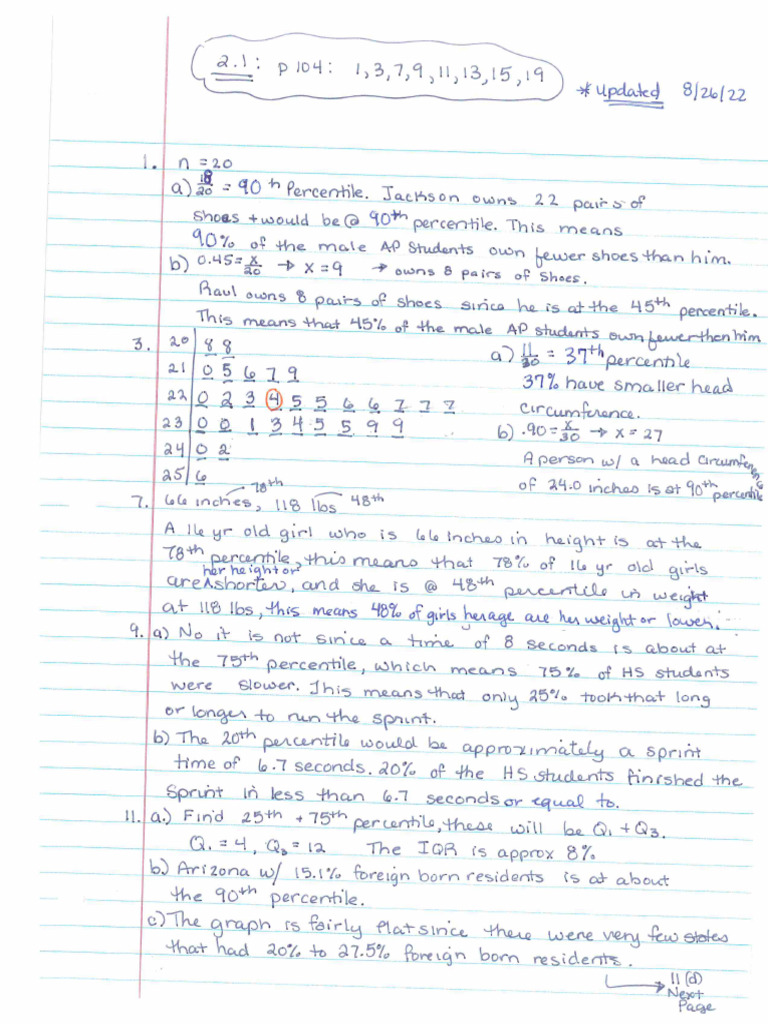 2.1: p 104: 1,3,7,9,11,13,15,19
*Updated 8/26/22
1. n = 20
a) 18/20 = 90th Percentile. Jackson owns 22 pairs of
shoes + would be @ 90th percentile. This means
90% of the male AP Students own fewer shoes than him.
b) 0.45 = x/20 → x = 9 → owns 8 pairs of shoes.
Raul owns 8 pairs of shoes since he is at the 45th percentile.
This means that 45% of the male AP students own fewer than him
3. 20 | 8 8
21 | 0 5 6 7 9
22 | 0 2 3 4 5 5 6 6 7 7 7
23 | 0 0 1 3 4 5 5 9 9
24 | 0 2
25 | 6
a) 11/30 = 37th percentile
37% have smaller head
circumference.
b) .90 = x/30 → x = 27
A person w/ a head circumference
of 24.0 inches is at 90th percentile
7. 66 inches, 78th 118 lbs 48th
A 16 yr old girl who is 66 inches in height is at the
78th percentile, this means that 78% of 16 yr old girls
are her height or shorter, and she is @ 48th percentile in weight
at 118 lbs, this means 48% of girls her age are her weight or lower.
9. a) No it is not since a time of 8 seconds is about at
the 75th percentile, which means 75% of HS students
were slower. This means that only 25% took that long
or longer to run the sprint.
b) The 20th percentile would be approximately a sprint
time of 6.7 seconds. 20% of the HS students finished the
sprint in less than 6.7 seconds or equal to.
11. a.) Find 25th + 75th percentile, these will be Q1 + Q3.
Q1 = 4, Q3 = 12 The IQR is approx 8%
b.) Arizona w/ 15.1% foreign born residents is at about
the 90th percentile.
c) The graph is fairly flat since there were very few states
that had 20% to 27.5% foreign born residents.
→ 11 (d)
Next
Page